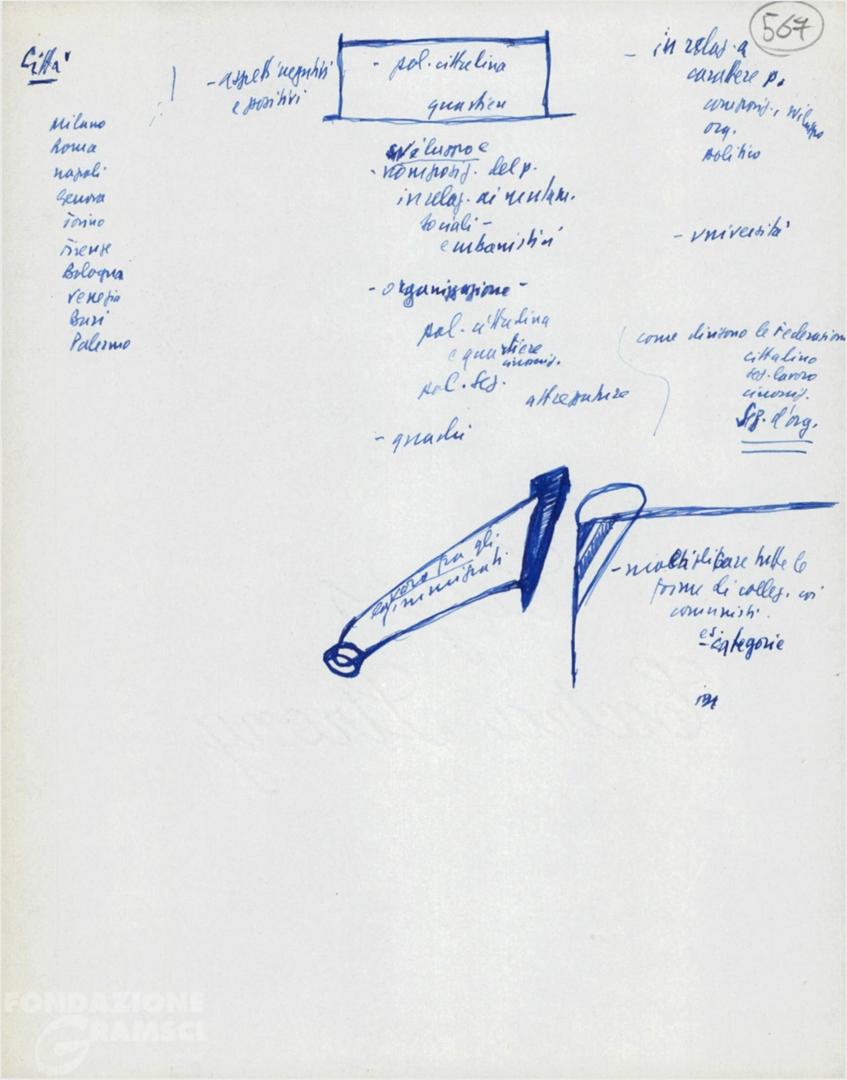 567
Città
Milano
Roma
Napoli
Genova
Torino
Firenze
Bologna
Venezia
Bari
Palermo
- aspetti negativi
e positivi
- pol. cittadina
quartieri
sviluppo e
- composiz. del p.
in relaz. ai mutam.
sociali -
e urbanistici
- organizzazione -
pol. cittadina
e quartiere
pol. sez.
attrezzature
- quadri
- in relaz. a
carattere p.
composiz., sviluppo
org.
politico
- università
come dividono le Federazioni
cittadino
lavoro
Sez. d'org.
lavoro fra gli
immigrati
- tutte le
forme di colleg. coi
comunisti.
es
- categorie
FONDAZIONE
GRAMSCI